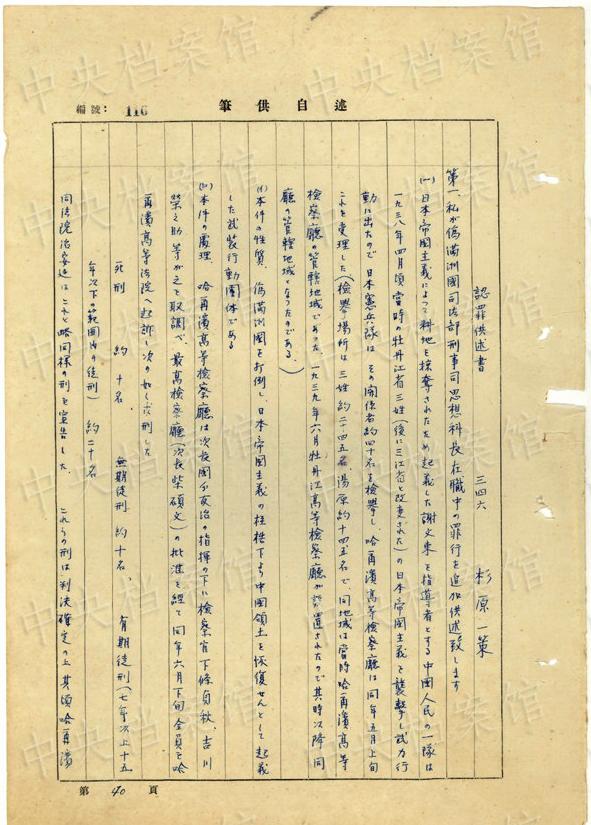 編號： 116
述自供筆
認罪供述書　三四六　杉原一策
第一、私が偽滿洲國司法部刑事司思想科長在職中の罪行を追加供述致します
(一)日本帝國主義によつて耕地を掠奪されたため起義した謝文東を指導者とする中國人民の一隊は
一九三八年四月頃當時の牡丹江省三姓(後に三江省と改変された)の日本帝國主義を襲擊し武力行
動に出たので日本憲兵隊は、その関係者約四十名を檢擧し、哈爾濱高等檢察廳は同年五月上旬
これを受理した(檢擧場所は三姓約二、四五名、湯原約十四五名で同地域は當時哈爾濱高等
檢察廳の管轄地域であった、一九三九年六月牡丹江高等檢察廳が設置されたので其時以降同
廳の管轄地域となつたのである。)
(イ)本件の性質、偽滿洲國を打倒し、日本帝國主義の桎梏下より中國領土を恢復せんとして起義
した武裝行動團体である
(ロ)本件の處理、哈爾濱高等檢察廳は次長岡本政治の指揮の下に檢察官下條貞秋、吉川
榮之助等が之を取調べ、最高檢察廳(次長柴碩文)の批准を經て同年六月下旬全員を哈
爾濱高等法院へ起訴し次の如く求刑した
死刑　約十名、　無期徒刑　約十名、　有期徒刑(七年以上十五
年以下の範囲内の徒刑)　約二十名
同法院治安廷はこれと略同様の刑を宣告した　これらの刑は判決確定の上其頃哈爾濱
第 40 頁
中央档案馆